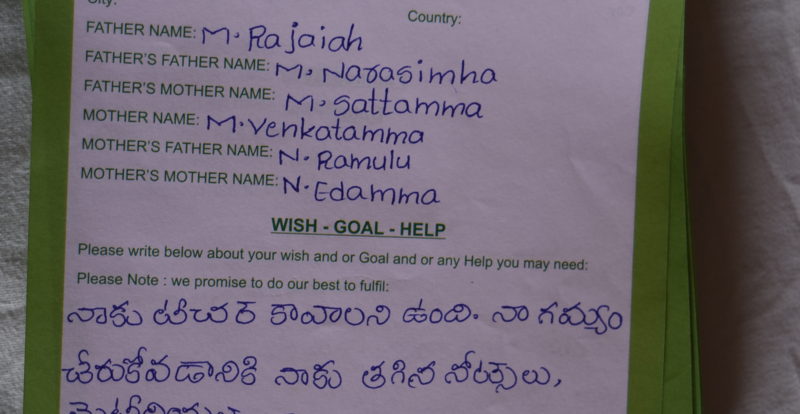 City:
Country:
FATHER NAME: M. Rajaiah
FATHER'S FATHER NAME: M. Narasimha
FATHER'S MOTHER NAME: M. Sattamma
MOTHER NAME: M. Venkatamma
MOTHER'S FATHER NAME: N. Ramulu
MOTHER'S MOTHER NAME: N. Edamma
WISH - GOAL - HELP
Please write below about your wish and or Goal and or any Help you may need:
Please Note : we promise to do our best to fulfil:
నాకు టీచర్ కావాలని ఉంది. నా గమ్యం
చేరుకోవడానికి నాకు తగిన నోట్సులు,